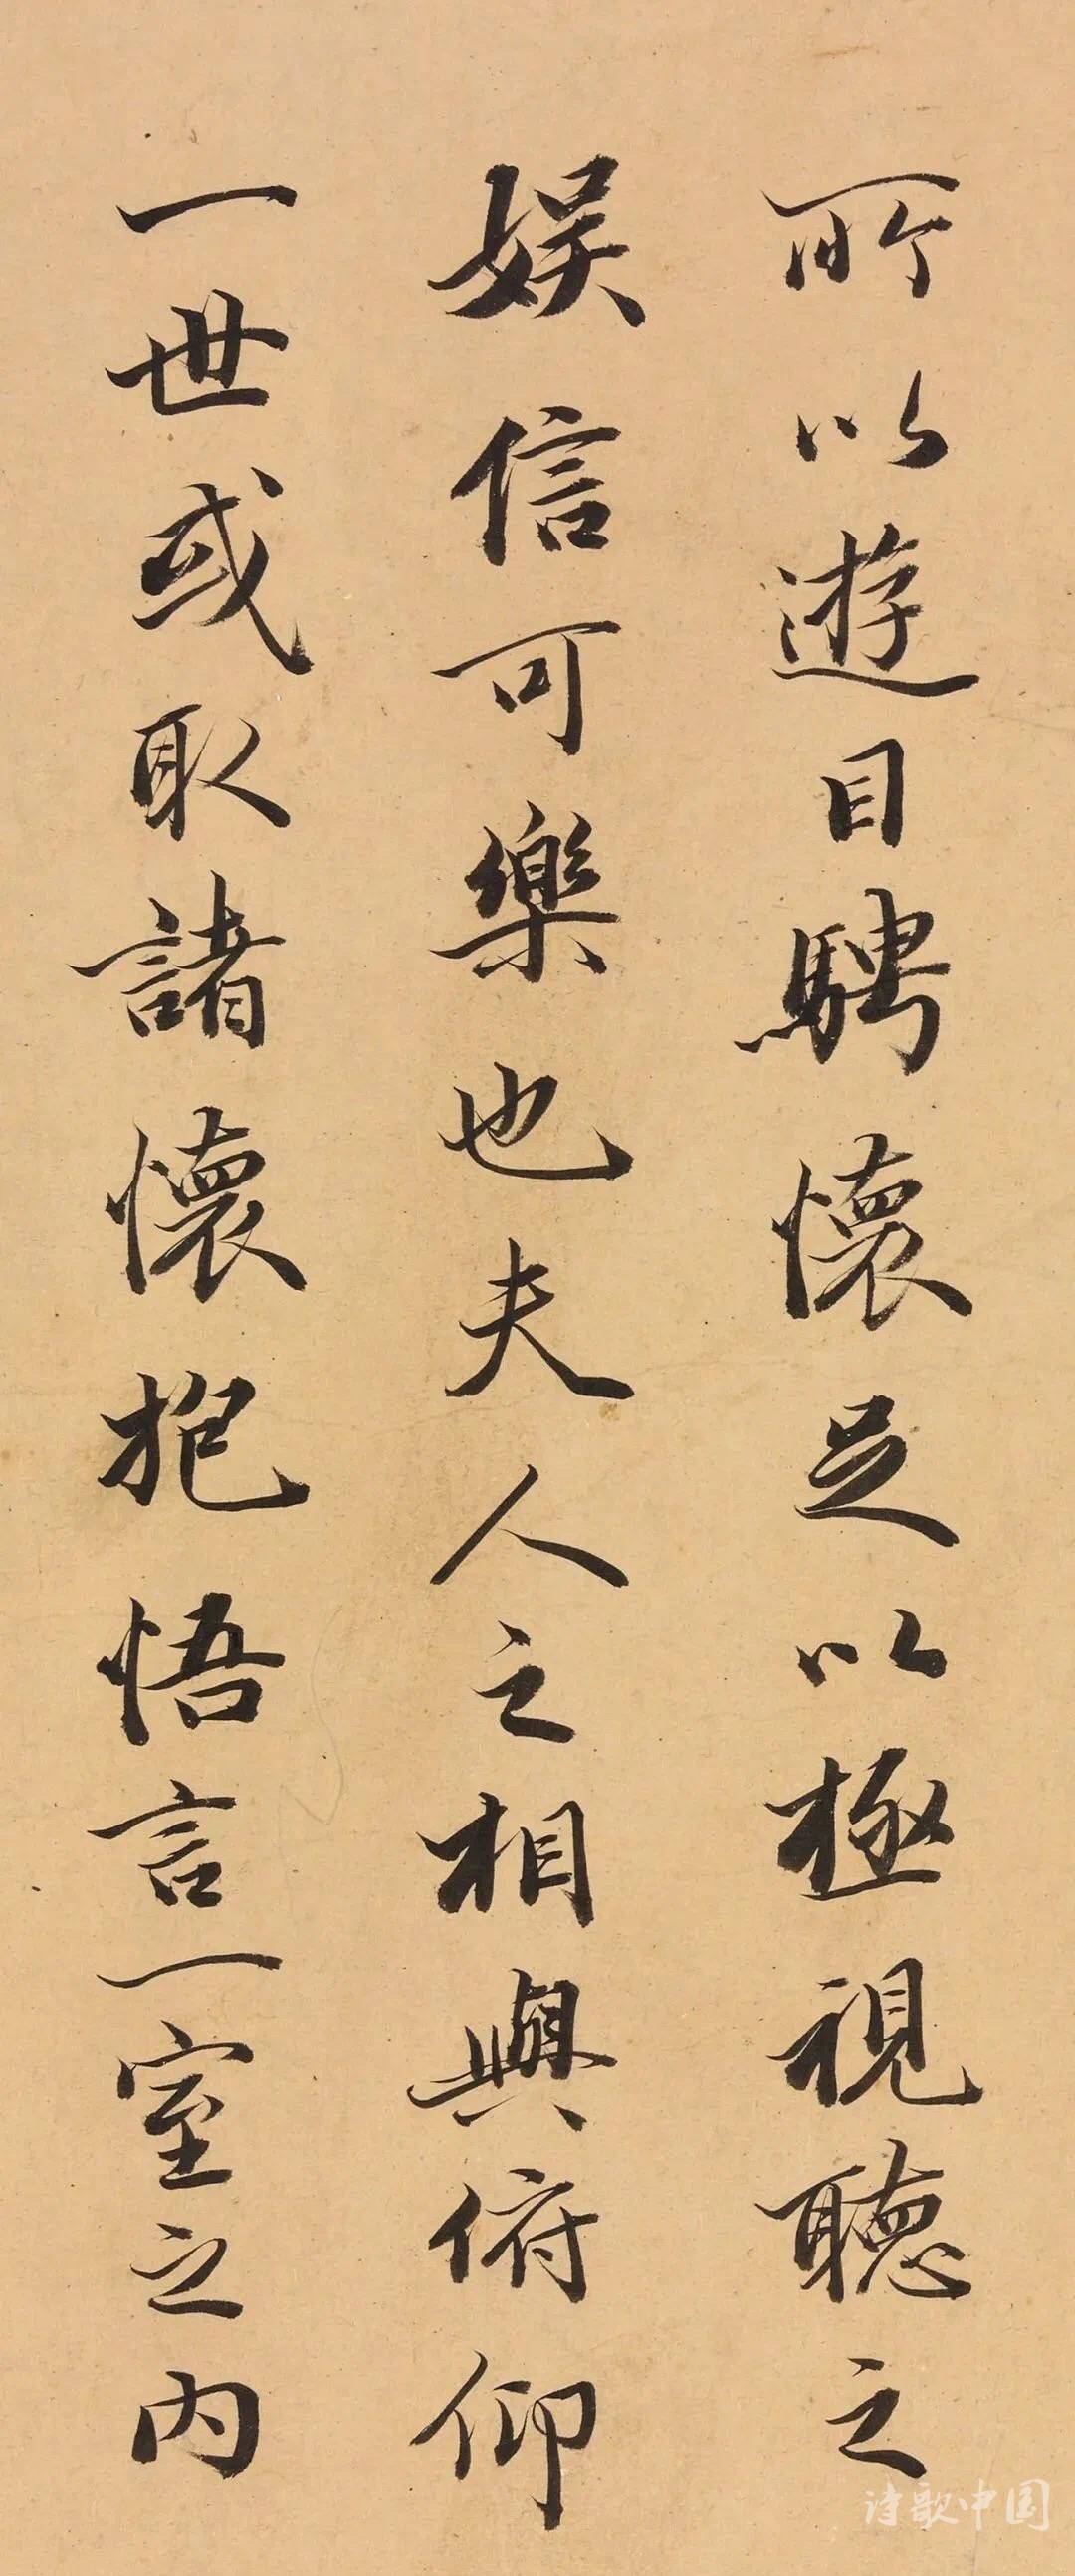 所以遊目騁懷足以極視聽之
娱信可樂也夫人之相與俯仰
一世或取諸懷抱悟言一室之內
诗歌中国